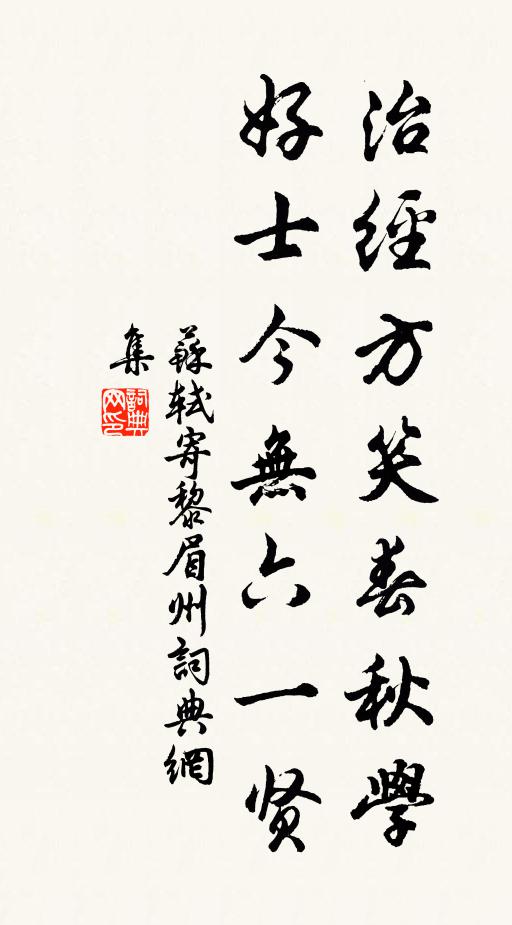 治經方笑春秋學
好士今無六一贤
蘇軾寄黎眉州詞典網
集
詞典
网印